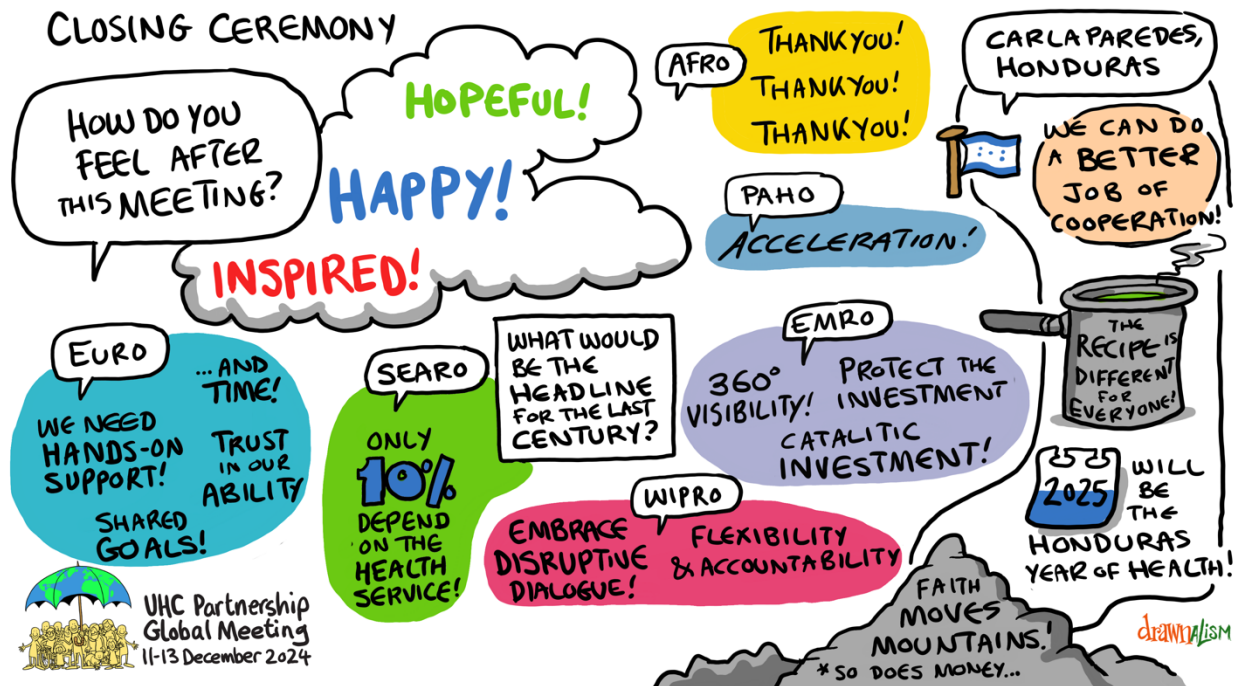 CLOSING CEREMONY
HOW DO YOU
FEEL AFTER
THIS MEETING?
HOPEFUL!
HAPPY!
INSPIRED!
AFRO
THANK YOU!
THANK YOU!
THANK YOU!
PAHO
ACCELERATION!
CARLA PAREDES,
HONDURAS
WE CAN DO
A BETTER
JOB OF
COOPERATION!
THE
RECIPE IS
DIFFERENT
FOR
EVERYONE!
2025
WILL
BE
THE
HONDURAS
YEAR OF HEALTH!
EURO
...AND
TIME!
WE NEED
HANDS-ON
SUPPORT!
TRUST
IN OUR
ABILITY
SHARED
GOALS!
SEARO
ONLY
10%
DEPEND
ON THE
HEALTH
SERVICE!
WHAT WOULD
BE THE
HEADLINE
FOR THE LAST
CENTURY?
EMRO
360°
VISIBILITY!
PROTECT THE
INVESTMENT
CATALITIC
INVESTMENT!
WIPRO
EMBRACE
DISRUPTIVE
DIALOGUE!
FLEXIBILITY
& ACCOUNTABILITY
FAITH
MOVES
MOUNTAINS!
*SO DOES MONEY...
UHC Partnership
Global Meeting
11-13 December 2024
drawnalism